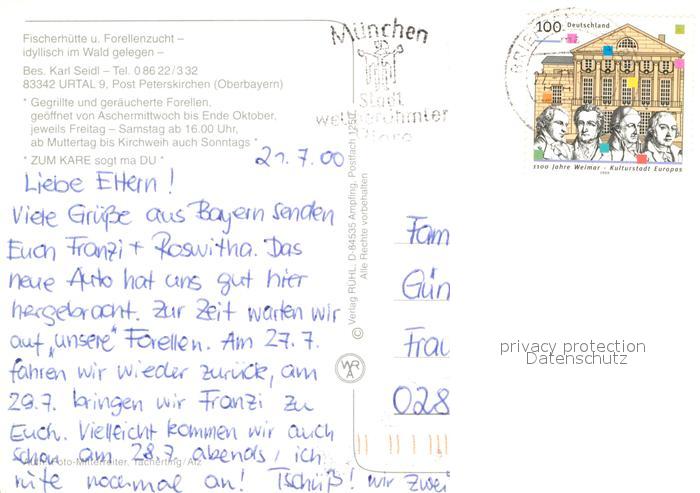 Fischerhütte u. Forellenzucht –
idyllisch im Wald gelegen –
Bes. Karl Seidl – Tel. 0 86 22 / 3 32
83342 URTAL 9, Post Peterskirchen (Oberbayern)
* Gegrillte und geräucherte Forellen,
geöffnet von Aschermittwoch bis Ende Oktober,
jeweils Freitag – Samstag ab 16.00 Uhr,
ab Muttertag bis Kirchweih auch Sonntags *
* ZUM KARE sogt ma DU *
21.7.00
Liebe Eltern!
Viele Grüße aus Bayern senden
Euch Franzi + Roswitha. Das
neue Auto hat uns gut hier
hergebracht. Zur Zeit warten wir
auf „unsere" Forellen. Am 27.7.
fahren wir wieder zurück, am
29.7. bringen wir Franzi zu
Euch. Vielleicht kommen wir auch
schon am 28.7. abends, ich
rufe nochmal an! Tschüß! wir zwei
Foto-Mitterreiter, Tacherting/Alz
© Verlag RÜHL, D-84535 Ampfing, Postfach 1250
Alle Rechte vorbehalten
München
Stadt
weltberühmter
100 Deutschland
1100 Jahre Weimar - Kulturstadt Europas
1999
Fam
Gün
Frau
028
privacy protection
Datenschutz